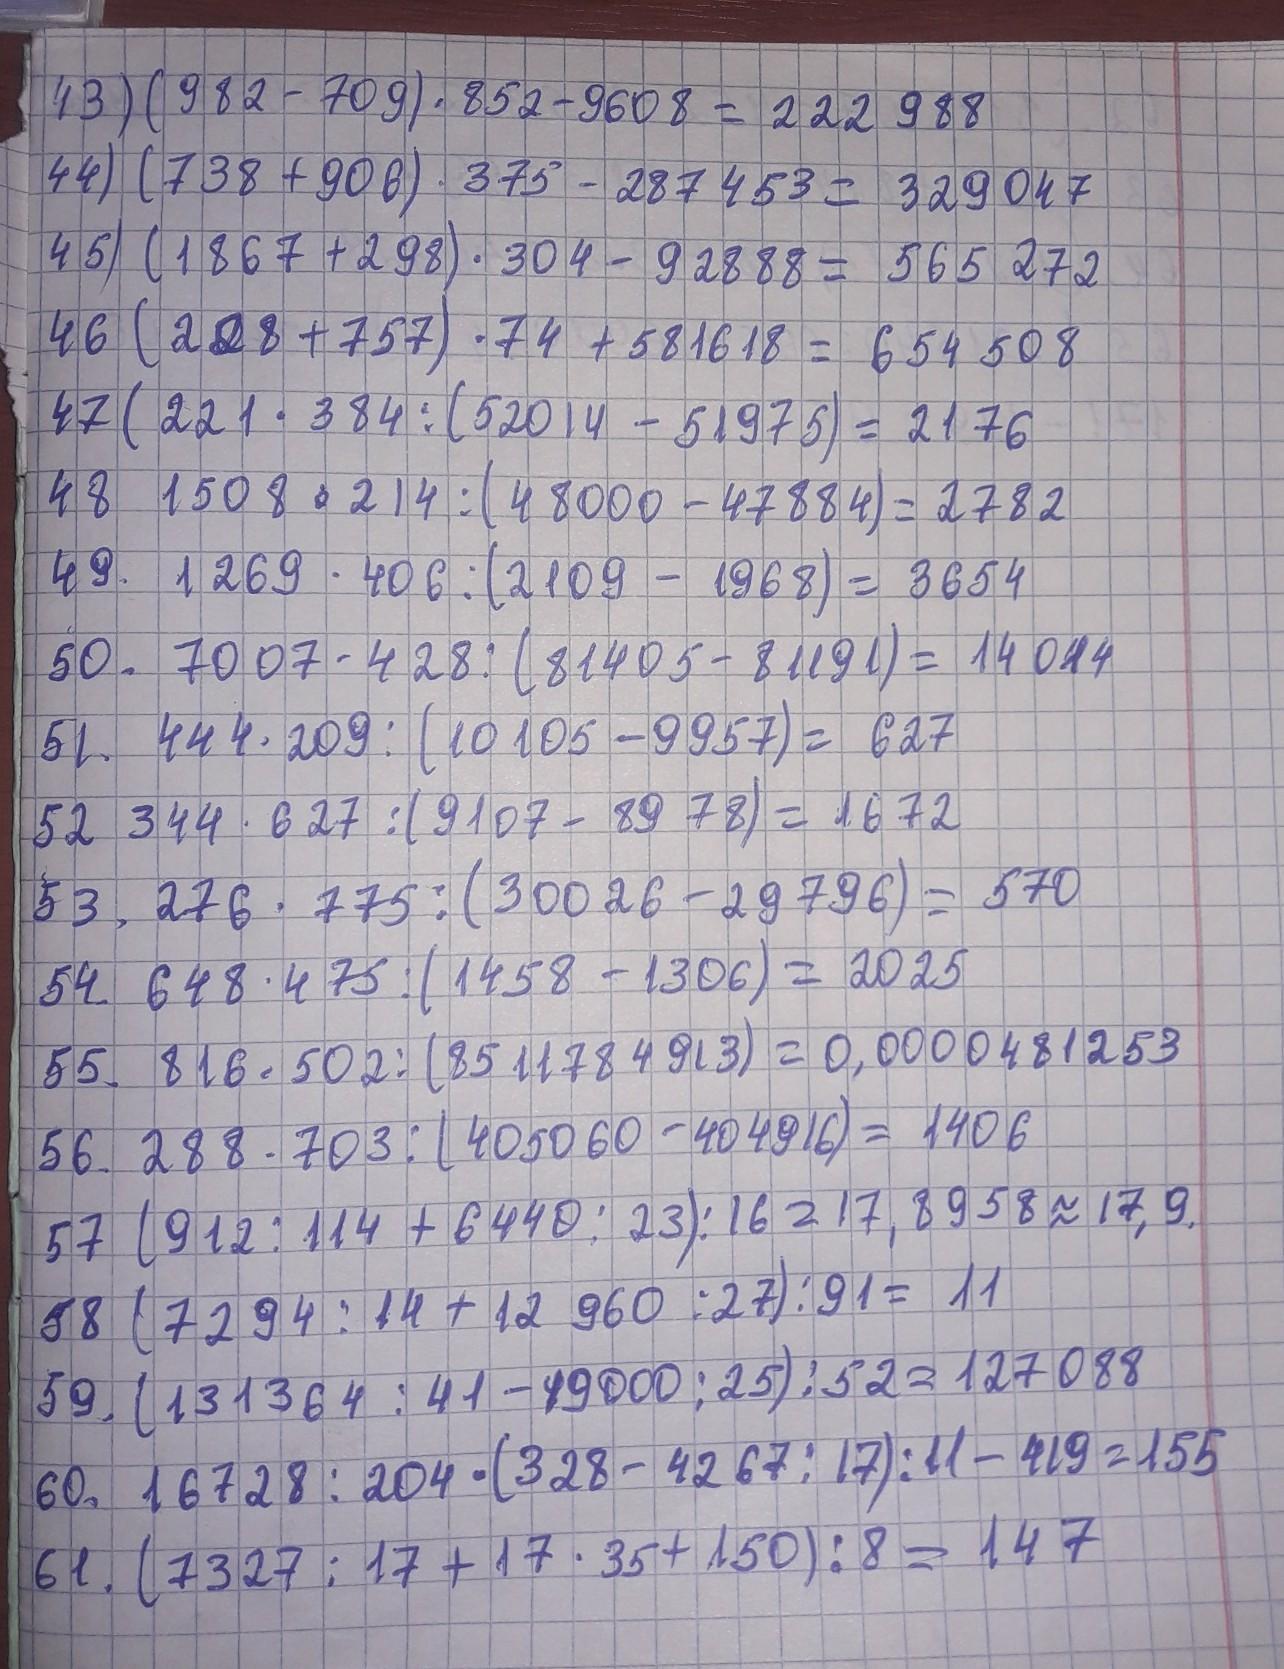 43) (982 - 709) · 852 - 9608 = 222 988
44) (738 + 906) · 375 - 287453 = 329047
45) (1867 + 298) · 304 - 92888 = 565 272
46 (228 + 757) · 74 + 581618 = 654508
47 ( 221 · 384 : (52014 - 51975) = 2176
48 1508 · 214 : (48000 - 47884) = 2782
49. 1269 · 406 : (2109 - 1968) = 3654
50. 7007 - 428 : (81405 - 81191) = 14014
51. 444 · 209 : (10105 - 9957) = 627
52 344 · 627 : (9107 - 8978) = 1672
53. 276 · 775 : (30026 - 29796) = 570
54. 648 · 475 : (1458 - 1306) = 2025
55. 816 · 502 : (8511784913) = 0,0000481253
56. 288 · 703 : (405060 - 404916) = 1406
57 (912 : 114 + 6440 : 23) : 16 = 17,8958 ≈ 17,9.
58 (7294 : 14 + 12 960 : 27) : 91 = 11
59. (131364 : 41 - 49000 : 25) : 52 = 127088
60. 16728 : 204 · (328 - 4267 : 17) : 11 - 419 = 155
61. (7327 : 17 + 17 · 35 + 150) : 8 = 147